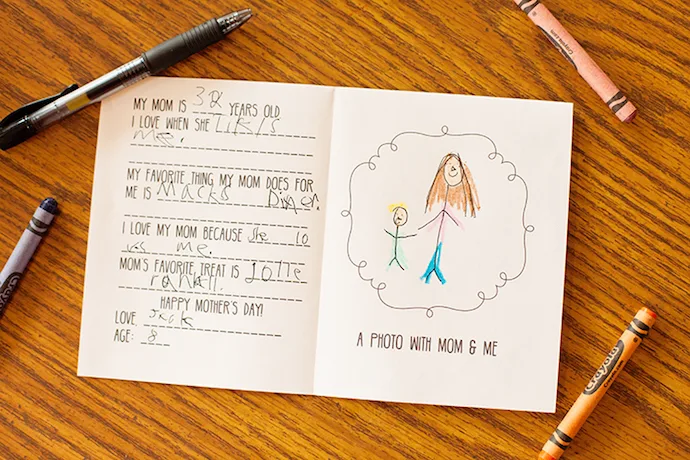 MY MOM IS 32 YEARS OLD
I LOVE WHEN SHE Likis
me.
MY FAVORITE THING MY MOM DOES FOR
ME IS Macks Diner.
I LOVE MY MOM BECAUSE She lo
vs me.
MOM'S FAVORITE TREAT IS
HAPPY MOTHER'S DAY!
LOVE, Jack
AGE: 8
A PHOTO WITH MOM & ME
Crayola
Crayola